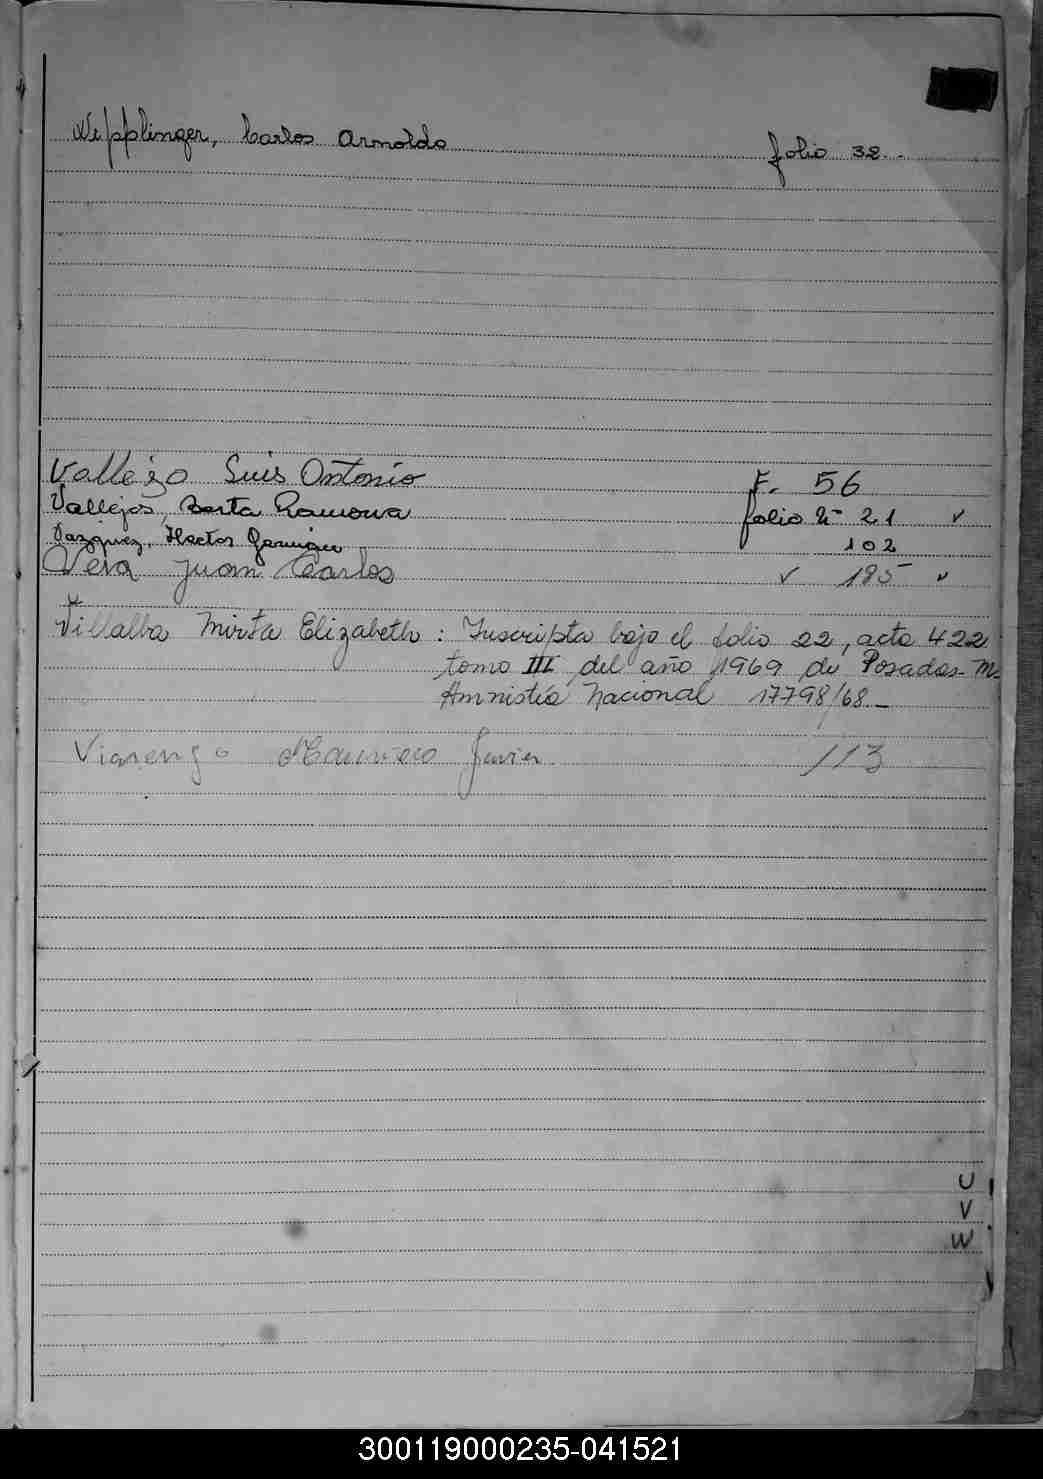 Wipplinger, Carlos Arnoldo folio 32.-
Vallejo Luis Antonio F. 56
Vallejos, Berta Ramona folio Nº 21 ✓
Vazquez, Hector 102
Vera Juan Carlos ✓ 195 ✓
Villalba Mirta Elizabeth : Inscripta bajo el folio 22, acta 422
tomo III del año 1969 de Posadas- M-
Amnistia Nacional 17798/68.-
Viarengo Mauricio Javier 113
U
V
W
300119000235-041521